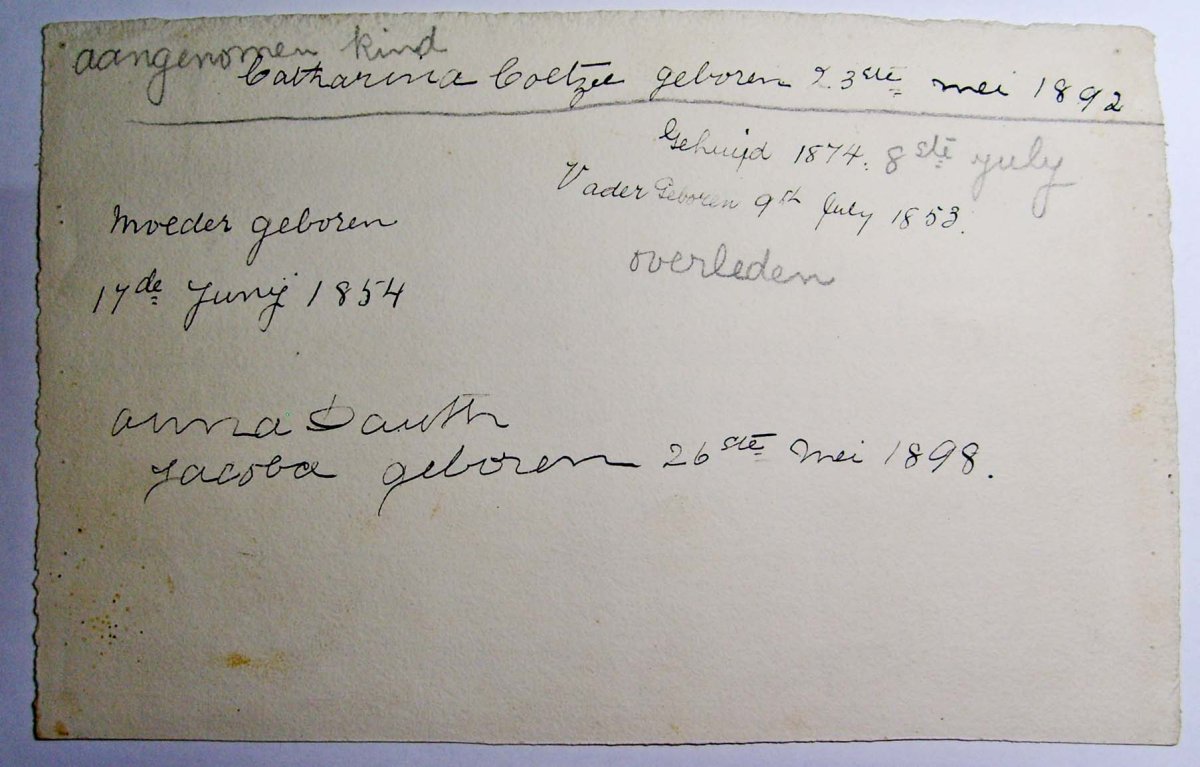 aangenomen kind
Catharina Coetzee geboren 23ste mei 1892
Gehuijd 1874. 8ste july
Vader Geboren 9th July 1853.
overleden
Moeder geboren
17de Junij 1854
anna Dauth
Jacoba geboren 26ste Mei 1898.